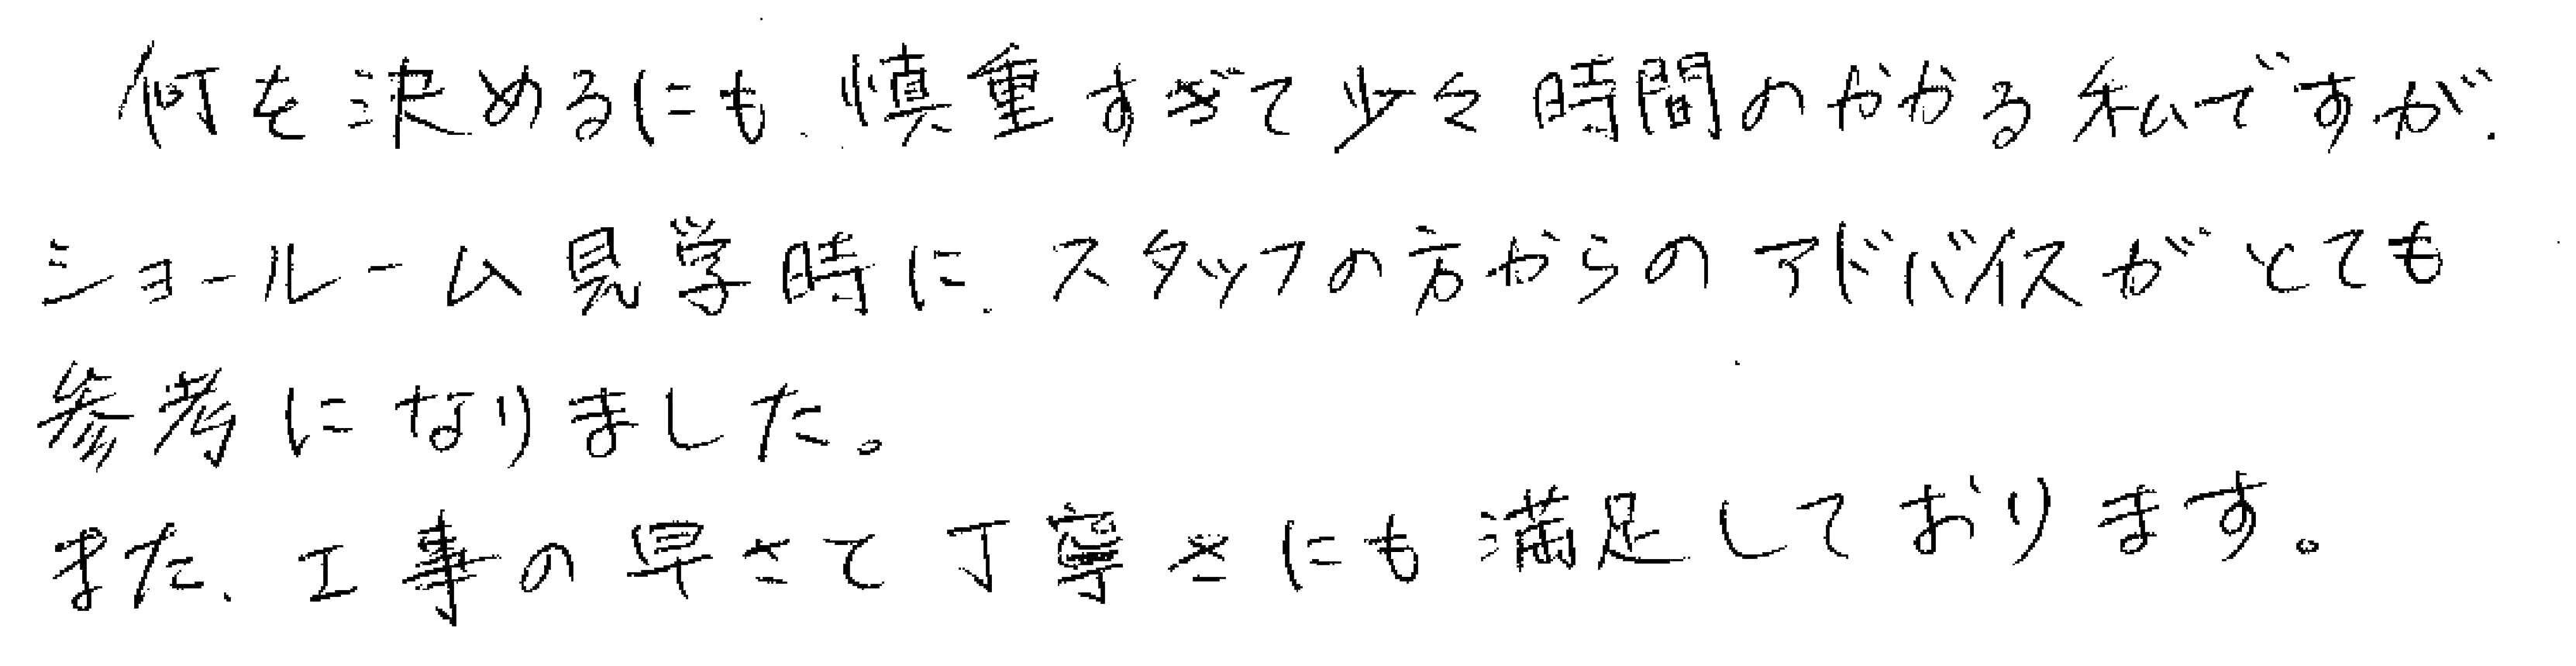 何を決めるにも、慎重すぎて少々時間のかかる私ですが、
ショールーム見学時に、スタッフの方からのアドバイスがとても
参考になりました。
また、工事の早さと丁寧さにも満足しております。